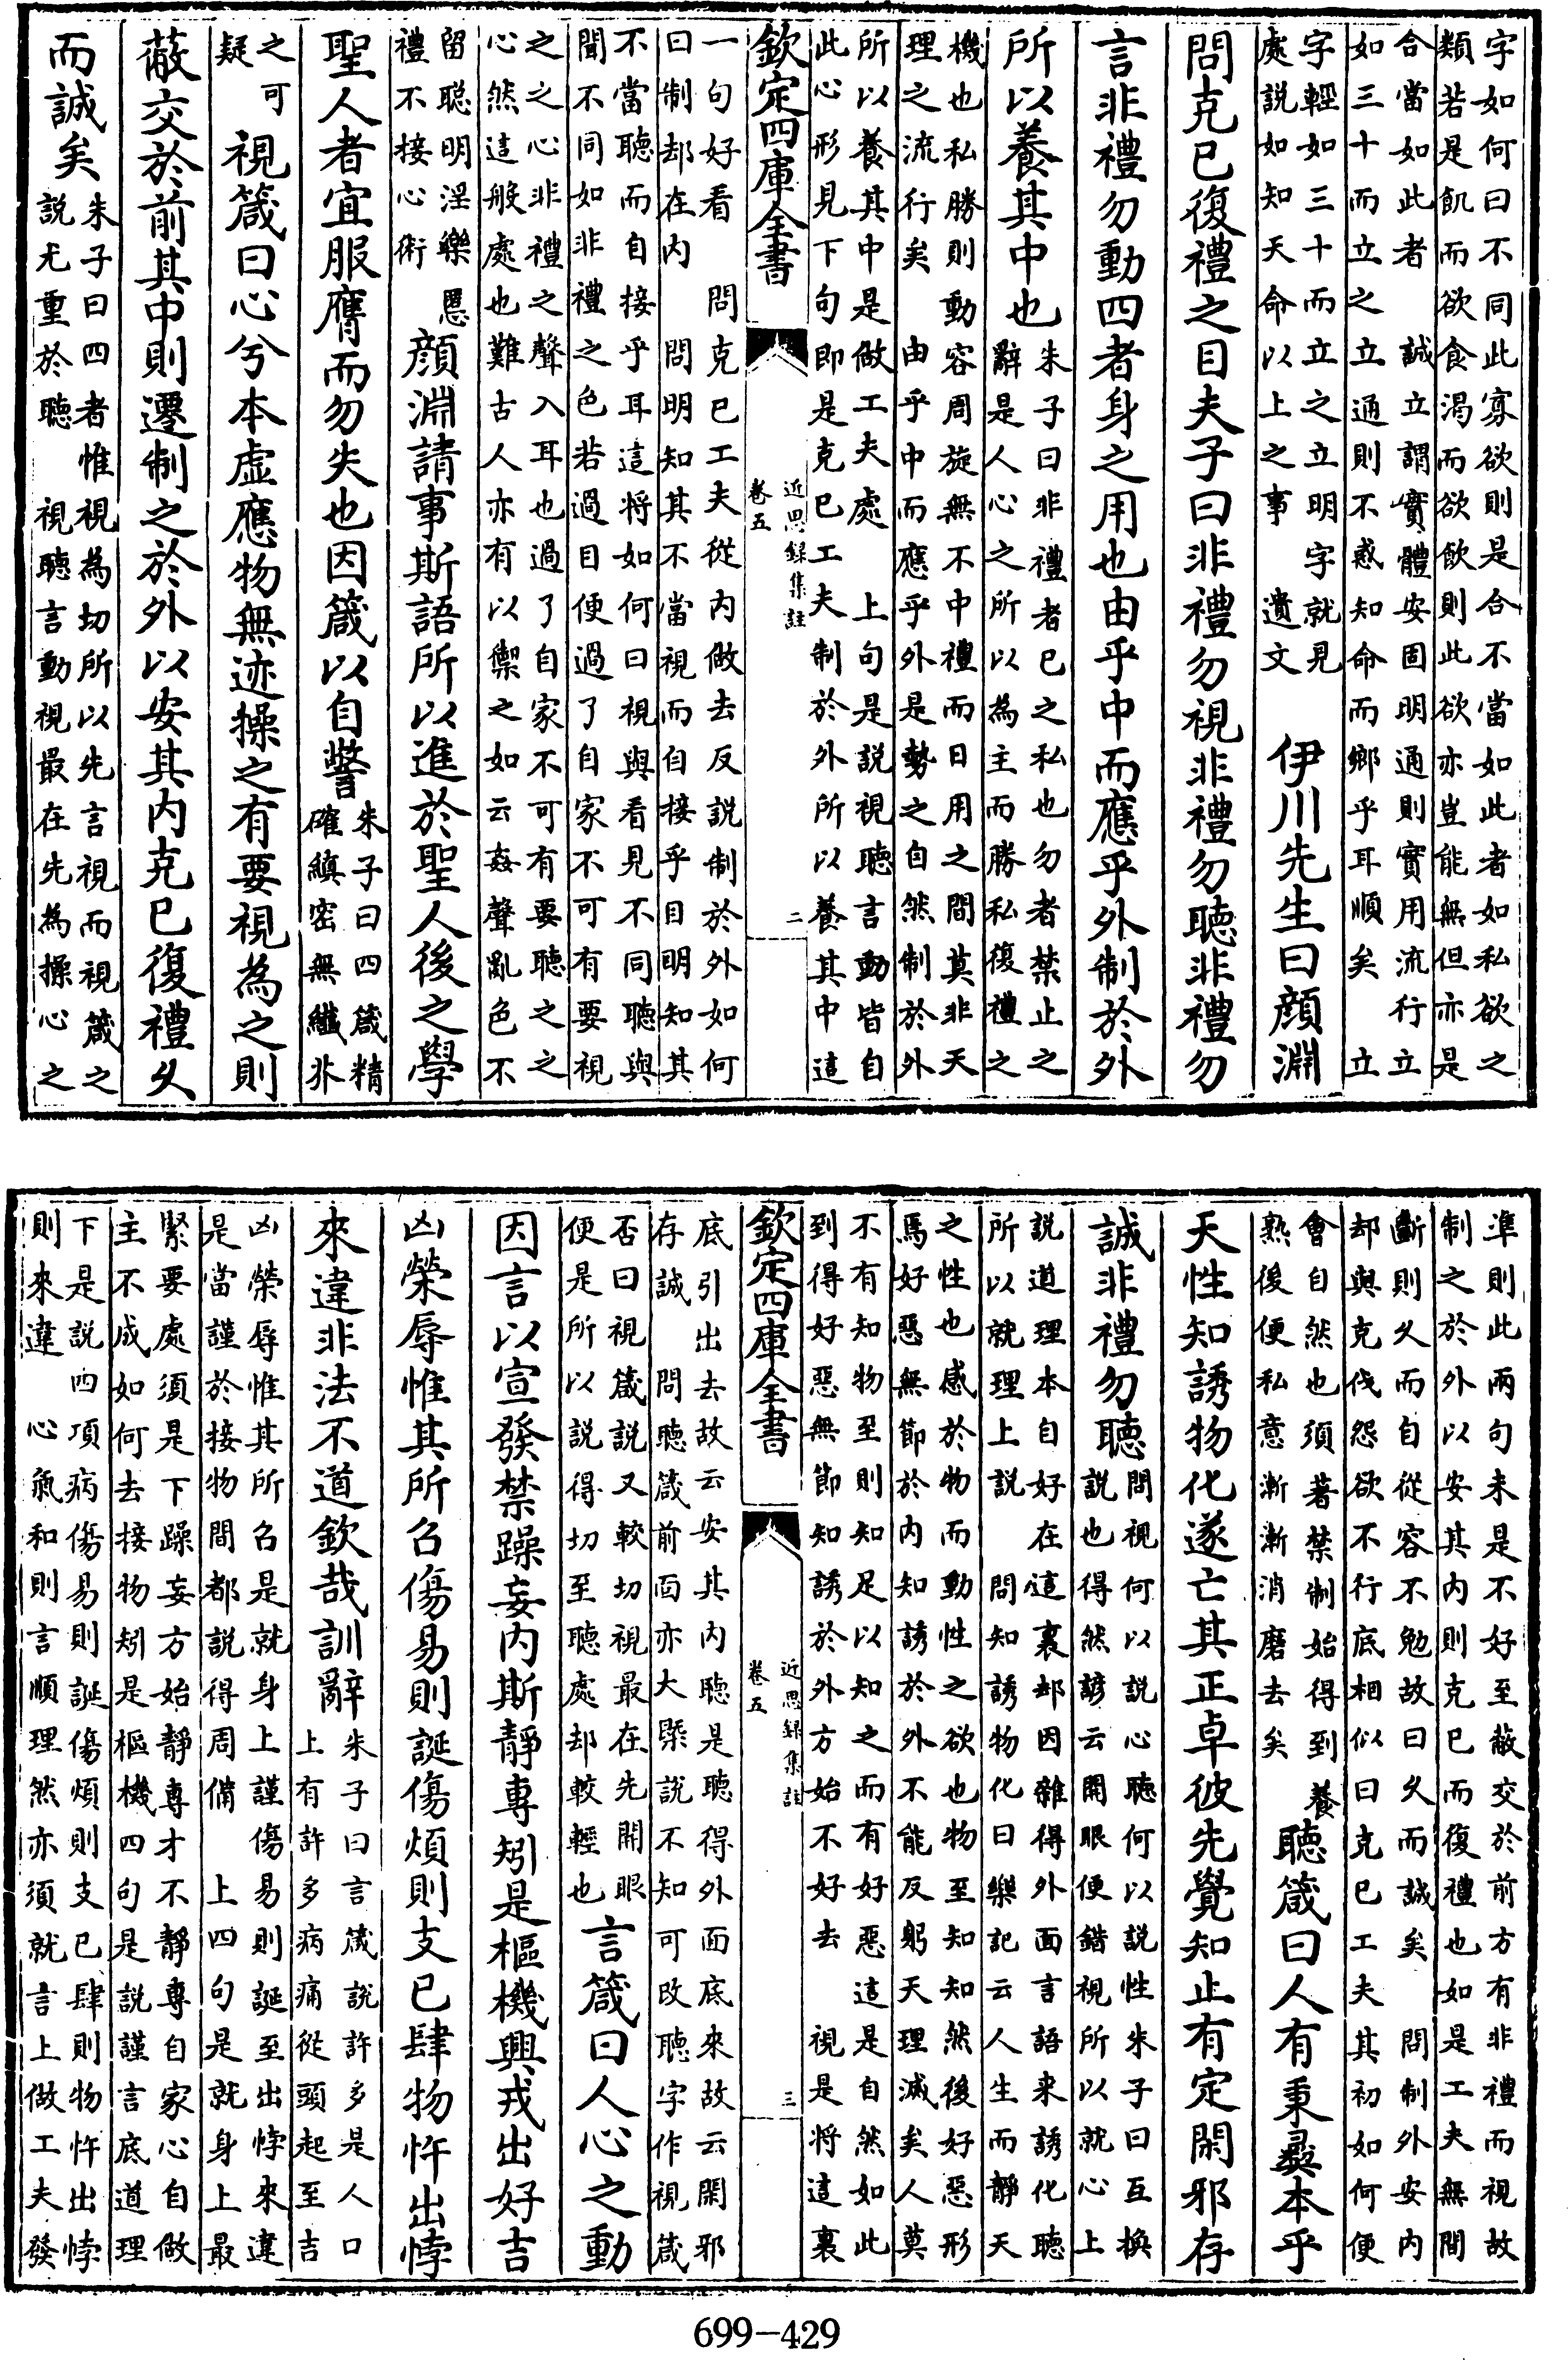 字如何曰不同此寡欲則是合不當如此者如私欲之
類若是飢而欲食渴而欲飲則此欲亦豈能無但亦是
合當如此者 誠立謂實體安固明通則實用流行立
如三十而立之立通則不惑知命而鄉乎耳順矣 立
字輕如三十而立之立明字就見
處說如知天命以上之事 遺文
伊川先生曰顏淵
問克已復禮之目夫子曰非禮勿視非禮勿聽非禮勿
言非禮勿動四者身之用也由乎中而應乎外制於外
所以養其中也
朱子曰非禮者已之私也勿者禁止之
辭是人心之所以為主而勝私復禮之
機也私勝則動容周旋無不中禮而日用之間莫非天
理之流行矣 由乎中而應乎外是勢之自然制於外
所以養其中是做工夫處 上句是說視聽言動皆自
此心形見下句即是克已工夫制於外所以養其中這
欽定四庫全書
近思録集註
卷五
二
一句好看 問克已工夫從内做去反說制於外如何
曰制却在内 問明知其不當視而自接乎目明知其
不當聽而自接乎耳這将如何曰視與看見不同聽與
聞不同如非禮之色若過目便過了自家不可有要視
之之心非禮之聲入耳也過了自家不可有要聽之之
心然這般處也難古人亦有以禦之如云姦聲亂色不
留聰明淫樂慝
禮不接心術
顏淵請事斯語所以進於聖人後之學
聖人者宜服膺而勿失也因箴以自警
朱子曰四箴精
確縝密無纖芥
之可
疑
視箴曰心兮本虛應物無迹操之有要視為之則
蔽交於前其中則遷制之於外以安其内克已復禮久
而誠矣
朱子曰四者惟視為切所以先言視而視箴之
說尤重於聽 視聽言動視最在先為操心之
準則此兩句未是不好至蔽交於前方有非禮而視故
制之於外以安其内則克已而復禮也如是工夫無間
斷則久而自從容不勉故曰久而誠矣 問制外安内
却與克伐怨欲不行底相似曰克已工夫其初如何便
會自然也須著禁制始得到養
熟後便私意漸漸消磨去矣
聽箴曰人有秉彝本乎
天性知誘物化遂亡其正卓彼先覺知止有定閑邪存
誠非禮勿聽
問視何以說心聽何以說性朱子曰互換
說也得然諺云開眼便錯視所以就心上
說道理本自好在這裏却因雜得外面言語来誘化聽
所以就理上說 問知誘物化曰樂記云人生而靜天
之性也感於物而動性之欲也物至知知然後好惡形
焉好惡無節於内知誘於外不能反躬天理滅矣人莫
不有知物至則知足以知之而有好惡這是自然如此
到得好惡無節知誘於外方始不好去 視是將這裏
欽定四庫全書
近思録集註
卷五
三
底引出去故云安其内聽是聽得外面底來故云閑邪
存誠 問聽箴前面亦大槩說不知可改聽字作視箴
否曰視箴說又較切視最在先開眼
便是所以說得切至聽處却較輕也
言箴曰人心之動
因言以宣發禁躁妄内斯靜專矧是樞機興戎出好吉
凶榮辱惟其所召傷易則誕傷煩則支已肆物忤出悖
來違非法不道欽哉訓辭
朱子曰言箴說許多是人口
上有許多病痛從頭起至吉
凶榮辱惟其所召是就身上謹傷易則誕至出悖來違
是當謹於接物間都說得周備 上四句是就身上最
緊要處須是不躁妄方始靜專才不靜專自家心自做
主不成如何去接物矧是樞機四句是說謹言底道理
下是說四項病傷易則誕傷煩則支已肆則物忤出悖
則來違 心氣和則言順理然亦須就言上做工夫發
699-429